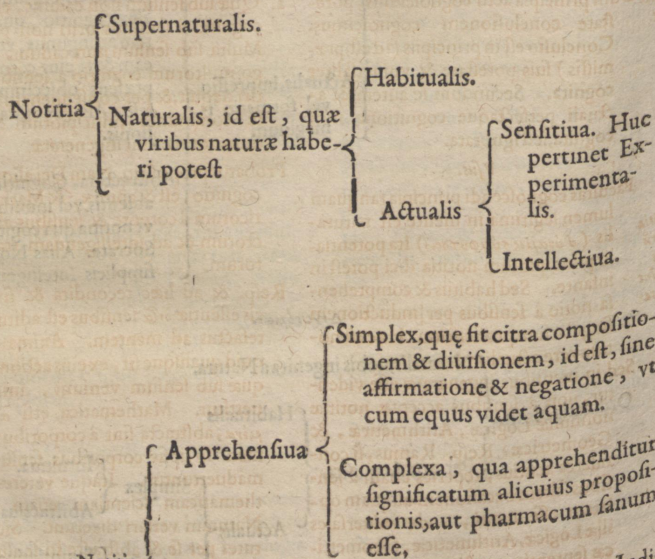 Supernaturalis.
Notitia
Naturalis, id eſt, quæ
viribus naturæ habe-
ri poteſt
Habitualis.
Actualis
Senſitiua. Huc
pertinet Ex-
perimenta-
lis.
Intellectiua.
Simplex, quę fit citra compoſitio-
nem & diuiſionem, id eſt, ſine
affirmatione & negatione, vt
cum equus videt aquam.
Apprehenſiua
Complexa, qua apprehenditur
ſignificatum alicuius propoſi-
tionis, aut pharmacum ſanum
eſſe,